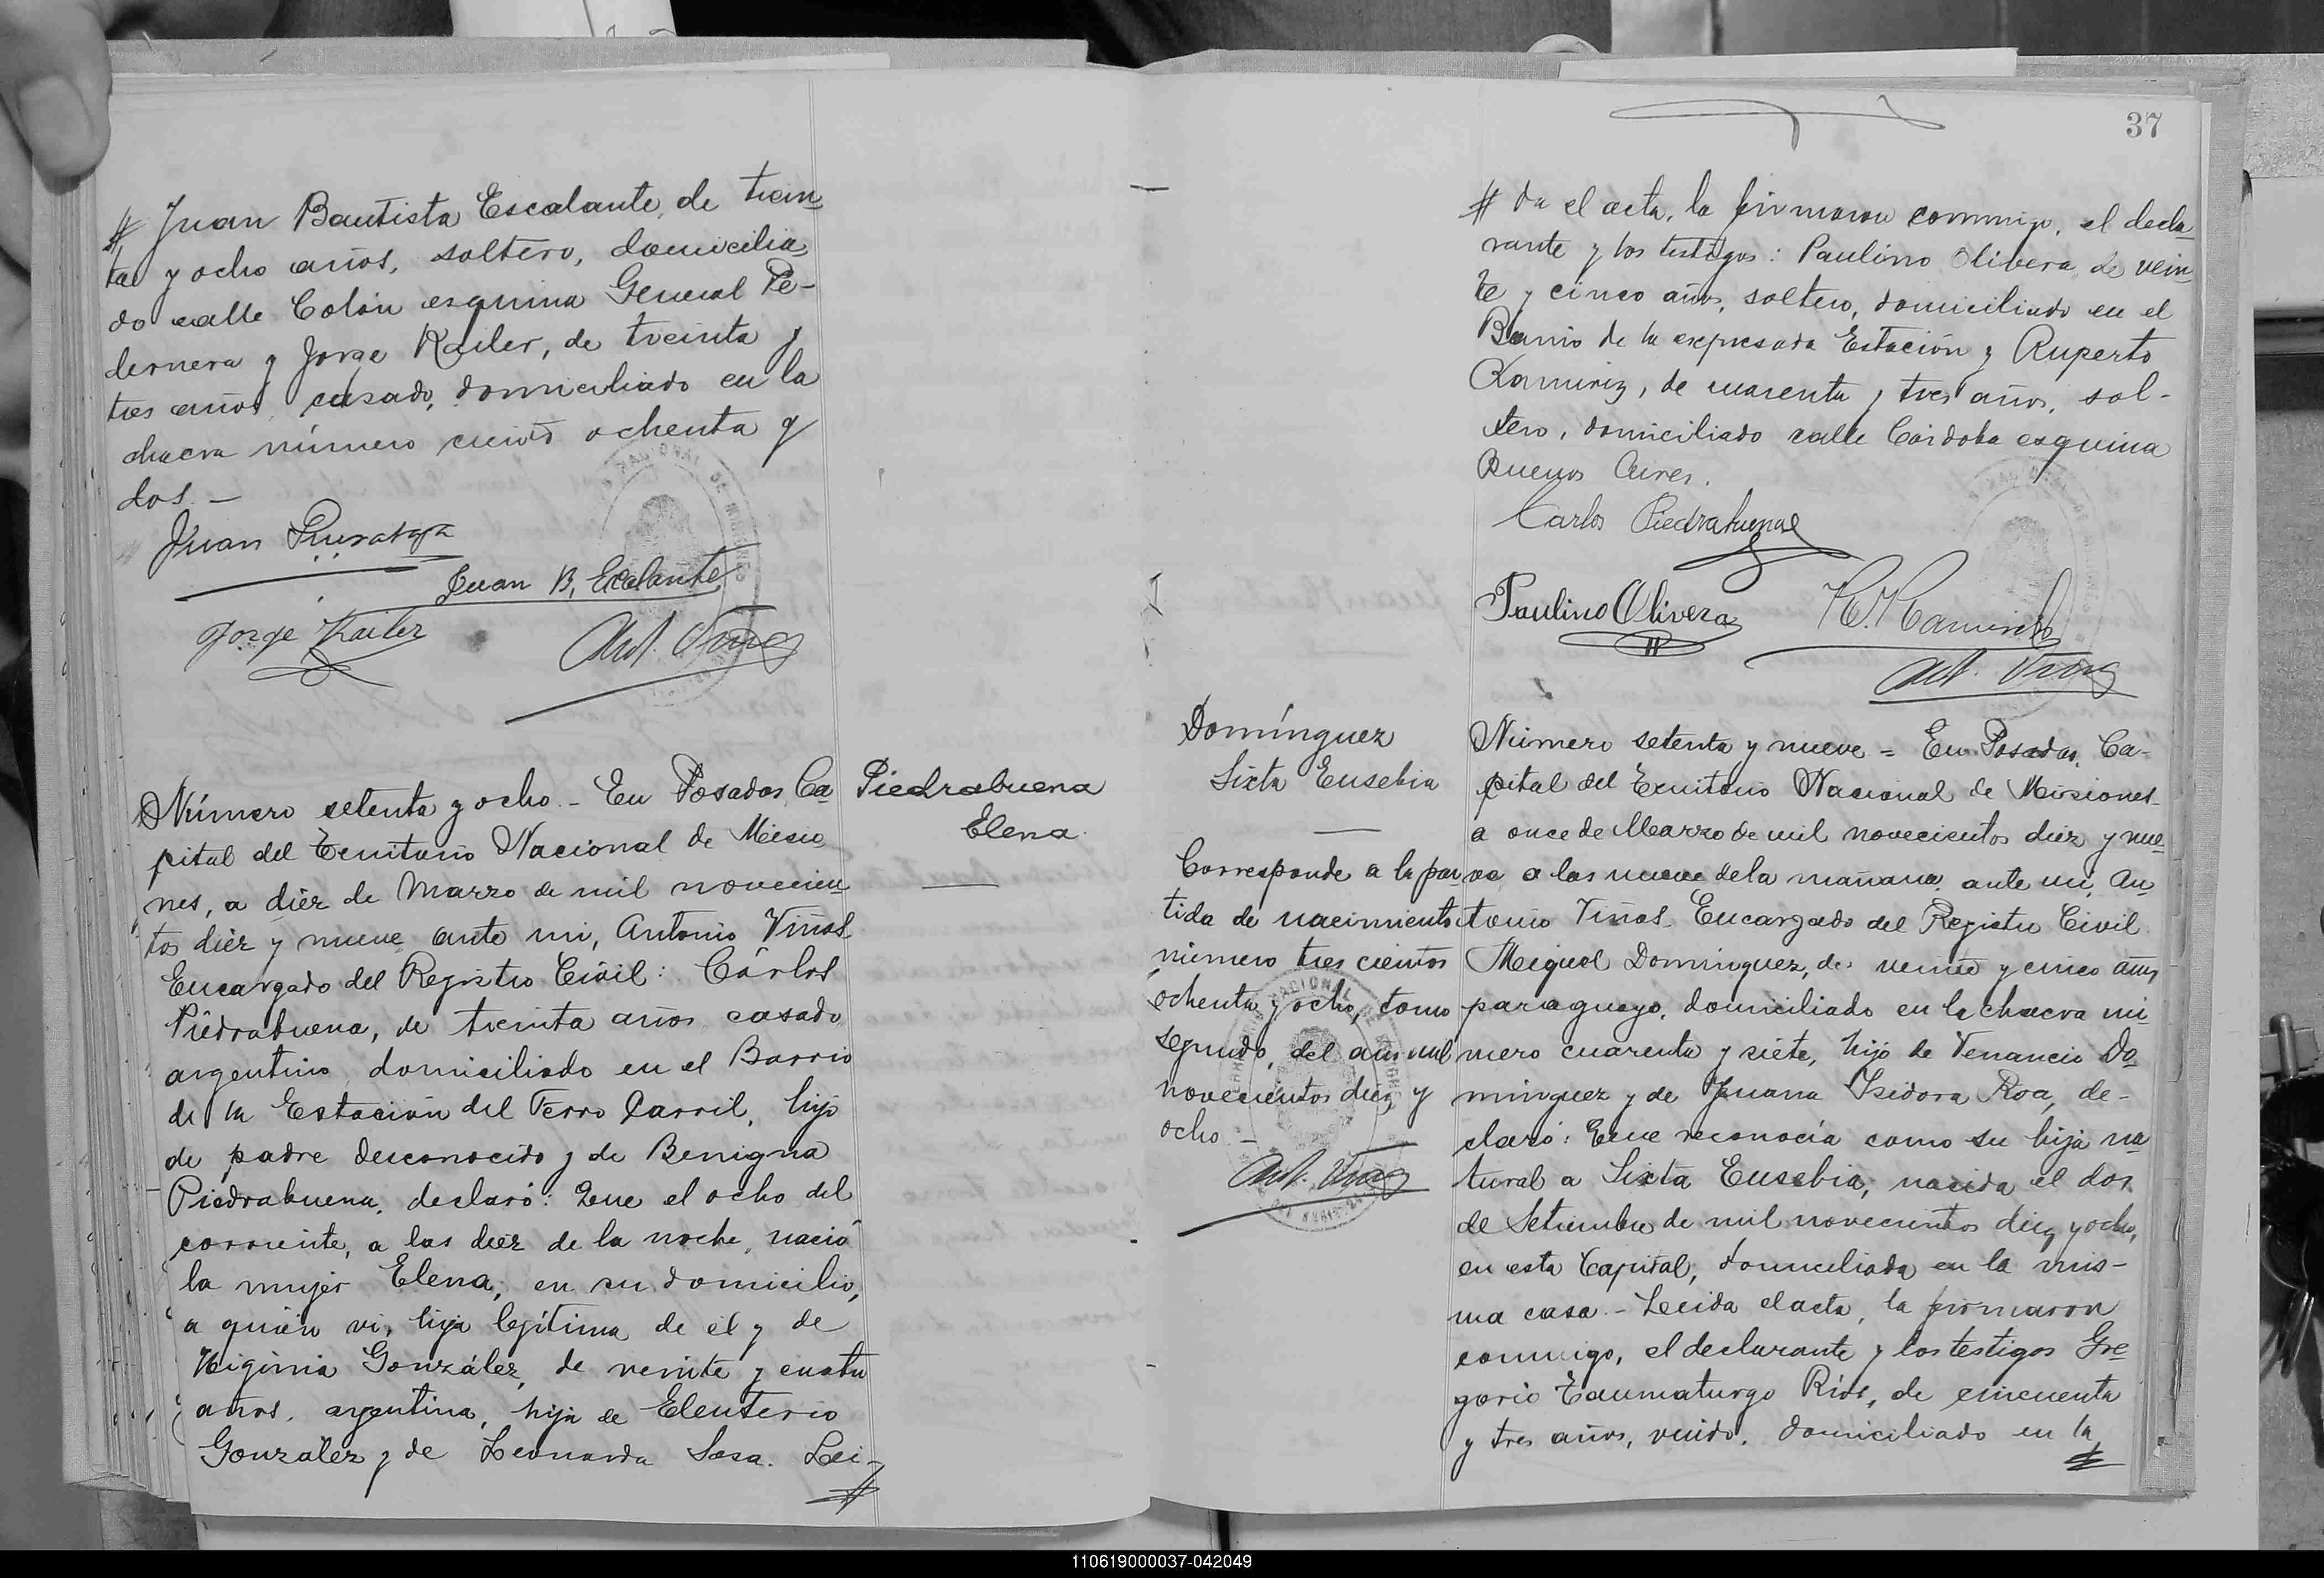 # Juan Bautista Escalante, de trein
ta y ocho años, soltero, domicilia
do calle Colón esquina General Pe-
dernera y Jorge Kailer, de treinta y
tres años, casado, domiciliado en la
chacra número ciento ochenta y
dos. -
Juan
Juan B. Escalante
Jorge Kailer
Ant. Viñas
Número setenta y ocho - En Posadas, Ca
pital del Territorio Nacional de Misio
nes, a diéz de Marzo de mil novecien
tos diéz y nueve, ante mi, Antonio Viñas
Encargado del Registro Civil: Cárlos
Piédrabuena, de treinta años, casado,
argentino, domiciliado en el Barrio
de la Estación del Ferro Carril, hijo
de padre desconocido y de Benigna
Piédrabuena, declaró: Que el ocho del
corriente, a las diez de la noche, nació
la mujer Elena, en su domicilio,
a quién vi, hija legítima de él y de
Higinia González, de veinte y cuatro
años, argentina, hija de Eleuterio
González y de Leonarda Sosa. Lei-
#
Piedrabuena
Elena
37
# da el acta, la firmaron conmigo, el decla
rante y los testigos: Paulino Olivera, de vein
te y cinco años, soltero, domiciliado en el
Barrio de la expresada Estación y Ruperto
Ramiriz, de cuarenta y tres años, sol-
tero, domiciliado calle Córdoba esquina
Buenos Aires.
Carlos Piedrabuena
Paulino Olivera
Ant. Viñas
Domínguez
Sixta Eusebia
Corresponde a la par
tida de nacimiento
número tres cientos
ochenta y ocho, tomo
segundo, del año mil
novecientos diez y
ocho -
Ant. Viñas
Número setenta y nueve = En Posadas, Ca-
pital del Territorio Nacional de Misiones
a once de Marzo de mil novecientos diéz y nue
ve a las nueve de la mañana, ante mi, An
tonio Viñas, Encargado del Registro Civil
Miguel Dominguez, de veinte y cinco años
paraguayo, domiciliado en la chacra nú
mero cuarenta y siéte, hijo de Venancio Do
minguez y de Juana Isidora Roa, de-
claró: Que reconocía como su hija na
tural a Sixta Eusebia, nacida el dos
de Setiembre de mil novecientos diez y ocho,
en esta Capital, domiciliada en la mis-
ma casa. - Leida el acta, la firmaron
conmigo, el declarante y los testigos Gre
gorio Taumaturgo Ríos, de cincuenta
y tres años, viudo, domiciliado en la
#
110619000037-042049